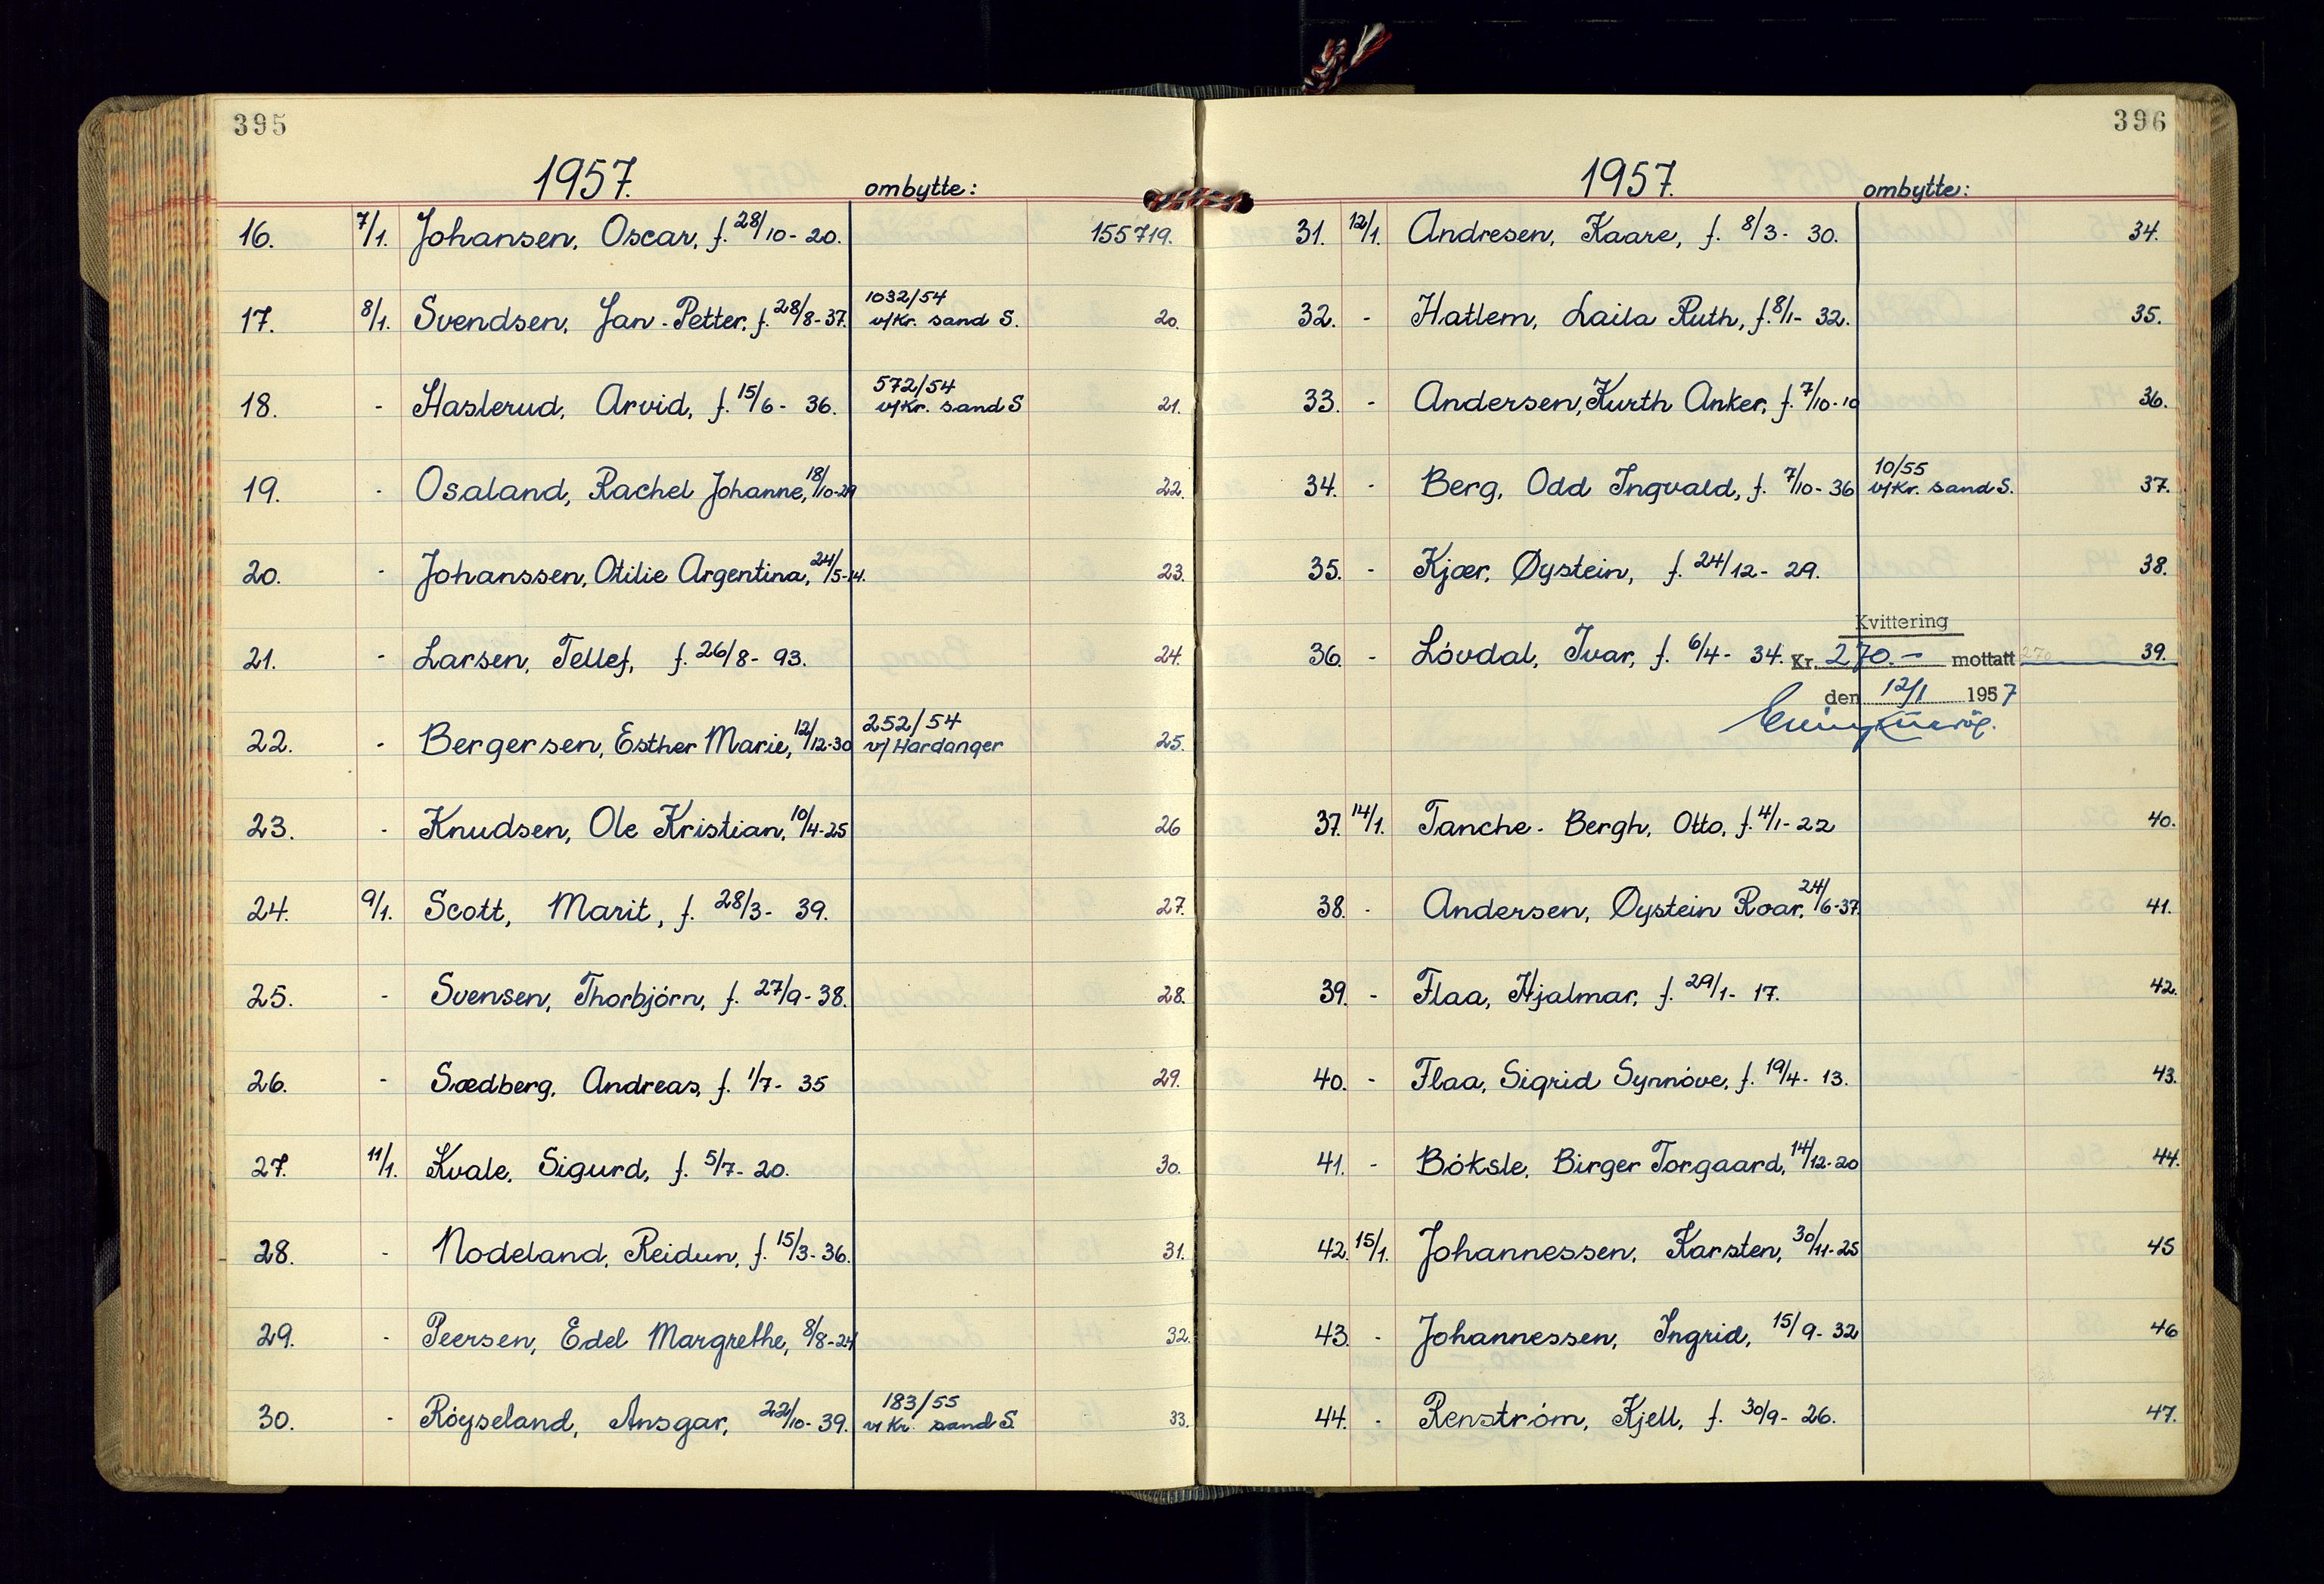 395
1957.
ombytte:
16. 7/1. Johansen, Oscar, f. 28/10-20. 155719.
17. 8/1. Svendsen, Jan-Petter, f. 28/8-37. 1032/54 v/Kr. sand S. 20.
18. - Haslerud, Arvid, f. 15/6-36. 572/54 v/Kr. sand S 21.
19. - Osaland, Rachel Johanne, 18/10-29 22.
20. - Johanssen, Otilie Argentina, 24/5-14. 23.
21. - Larsen, Tellef, f. 26/8-93. 24.
22. - Bergersen, Esther Marie, 12/12-30 252/54 v/Hardanger 25.
23. - Knudsen, Ole Kristian, 10/4-25 26
24. 9/1. Scott, Marit, f. 28/3-39. 27.
25. - Svensen, Thorbjörn, f. 27/9-38. 28.
26. - Sædberg, Andreas, f. 1/7-35 29.
27. 11/1. Kvale, Sigurd, f. 5/7-20. 30.
28. - Nodeland, Reidun, f. 15/3-36. 31.
29. - Peersen, Edel Margrethe, 8/8-24 32.
30. - Röyseland, Ansgar, 22/10-39. 183/55 v/Kr. sand S. 33.
396
1957.
ombytte:
31. 12/1. Andresen, Kaare, f. 8/3-30. 34.
32. - Hatlem, Laila Ruth, f. 8/1-32. 35.
33. - Andersen, Kurth Anker, f. 7/10-10 36.
34. - Berg, Odd Ingvald, f. 7/10-36 10/55 v/Kr. sand S. 37.
35. - Kjær, Øystein, f. 24/12-29. 38.
Kvittering
36. - Lövdal, Ivar, f. 6/4-34. Kr. 270.- mottatt 270 39.
den 12/1 1957
37. 14/1. Tanche-Bergh, Otto, f. 4/1-22 40.
38. - Andersen, Øystein Roar, 24/6-37. 41.
39. - Flaa, Hjalmar, f. 29/1-17. 42.
40. - Flaa, Sigrid Synnöve, f. 19/4-13. 43.
41. - Böksle, Birger Torgaard, 14/12-20 44.
42. 15/1. Johannessen, Karsten, 30/11-25 45
43. - Johannessen, Ingrid, 15/9-32 46
44. - Renström, Kjell, f. 30/9-26. 47.